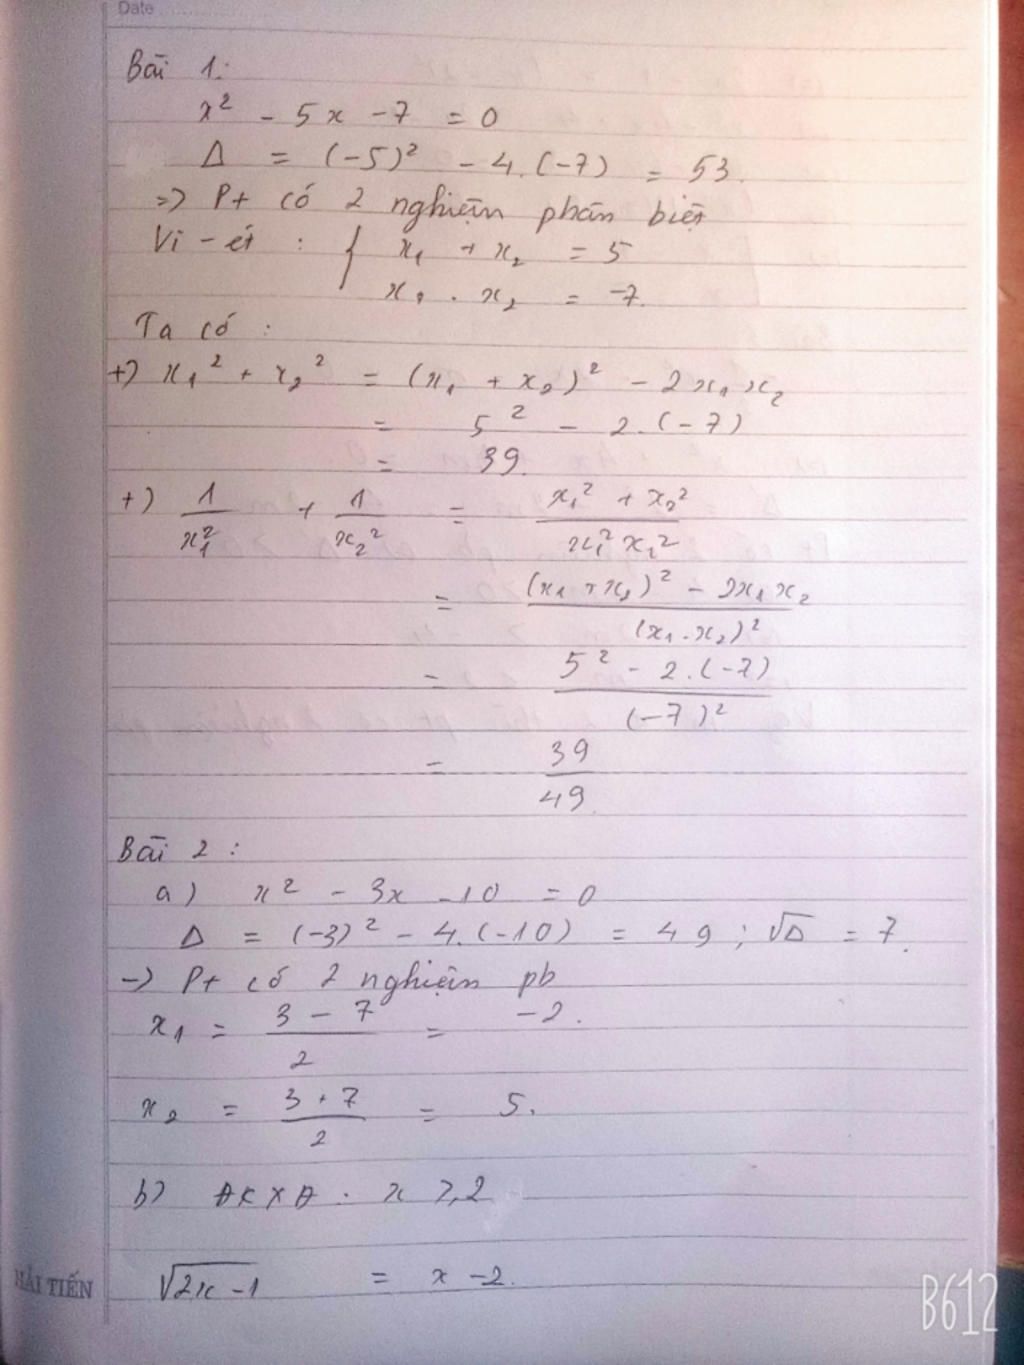 Date
Bài 1:
x² - 5x - 7 = 0
Δ = (-5)² - 4.(-7) = 53.
=> Pt có 2 nghiệm phân biệt
Vi-ét : { x₁ + x₂ = 5
x₁ . x₂ = -7.
Ta có :
+) x₁² + x₂² = (x₁ + x₂)² - 2x₁x₂
= 5² - 2.(-7)
= 39.
+) 1/x₁² + 1/x₂² = (x₁² + x₂²)/(x₁² x₂²)
= ((x₁ + x₂)² - 2x₁x₂)/(x₁.x₂)²
= (5² - 2.(-7))/(-7)²
= 39/49.
Bài 2 :
a) x² - 3x - 10 = 0
Δ = (-3)² - 4.(-10) = 49 ; √Δ = 7.
-> Pt có 2 nghiệm pb
x₁ = (3 - 7)/2 = -2.
x₂ = (3 + 7)/2 = 5.
b) ĐKXĐ . x ⩾ 2
√(2x - 1) = x - 2.
HẢI TIẾN
B612